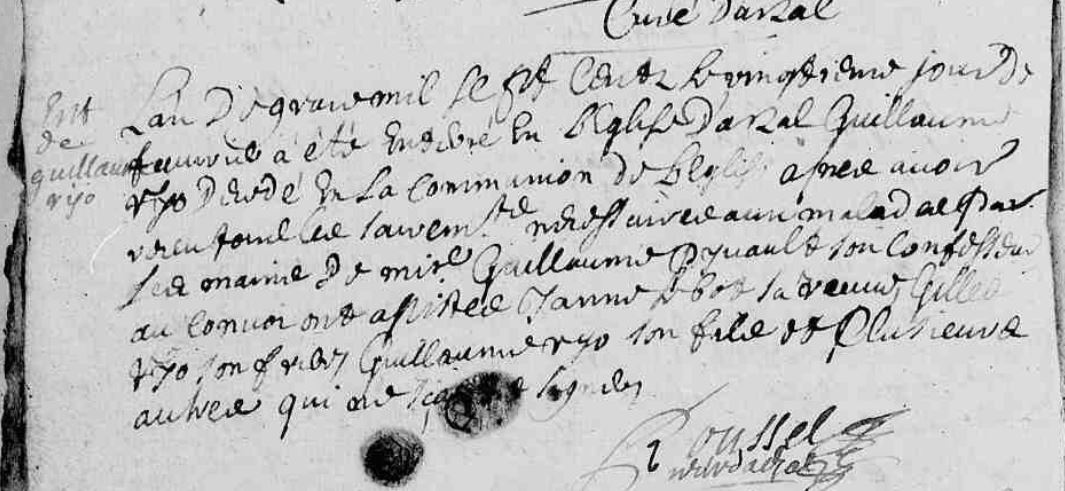 Curé Darzal
Ent
de
guillaume
ryo
Lan De grace mil sept Cents Le vingtieme jour De
fevrier a été Enterré En l'Eglise Darzal Guillaume
ryo Decedé En La Communion De l'Eglise apres avoir
receu tous les sacrem.ts necessaires aux malades Par
les mains De mire Guillaume son Confesseur
au Convoi ont assistes Janne sa veuve, Gilles
ryo son frere, Guillaume ryo son fils et Plusieurs
autres qui ne signer
Roussel